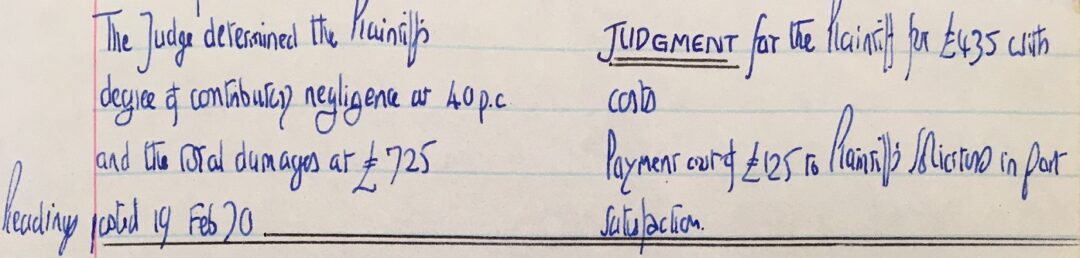 The Judge determined the Plaintiff's
degree of contributory negligence at 40 p.c
and the total damages at £725
Pleadings posted 19 Feb 70
JUDGMENT for the Plaintiff for £435 with
costs
Payment out of £125 to Plaintiff's Solicitors in part
satisfaction.